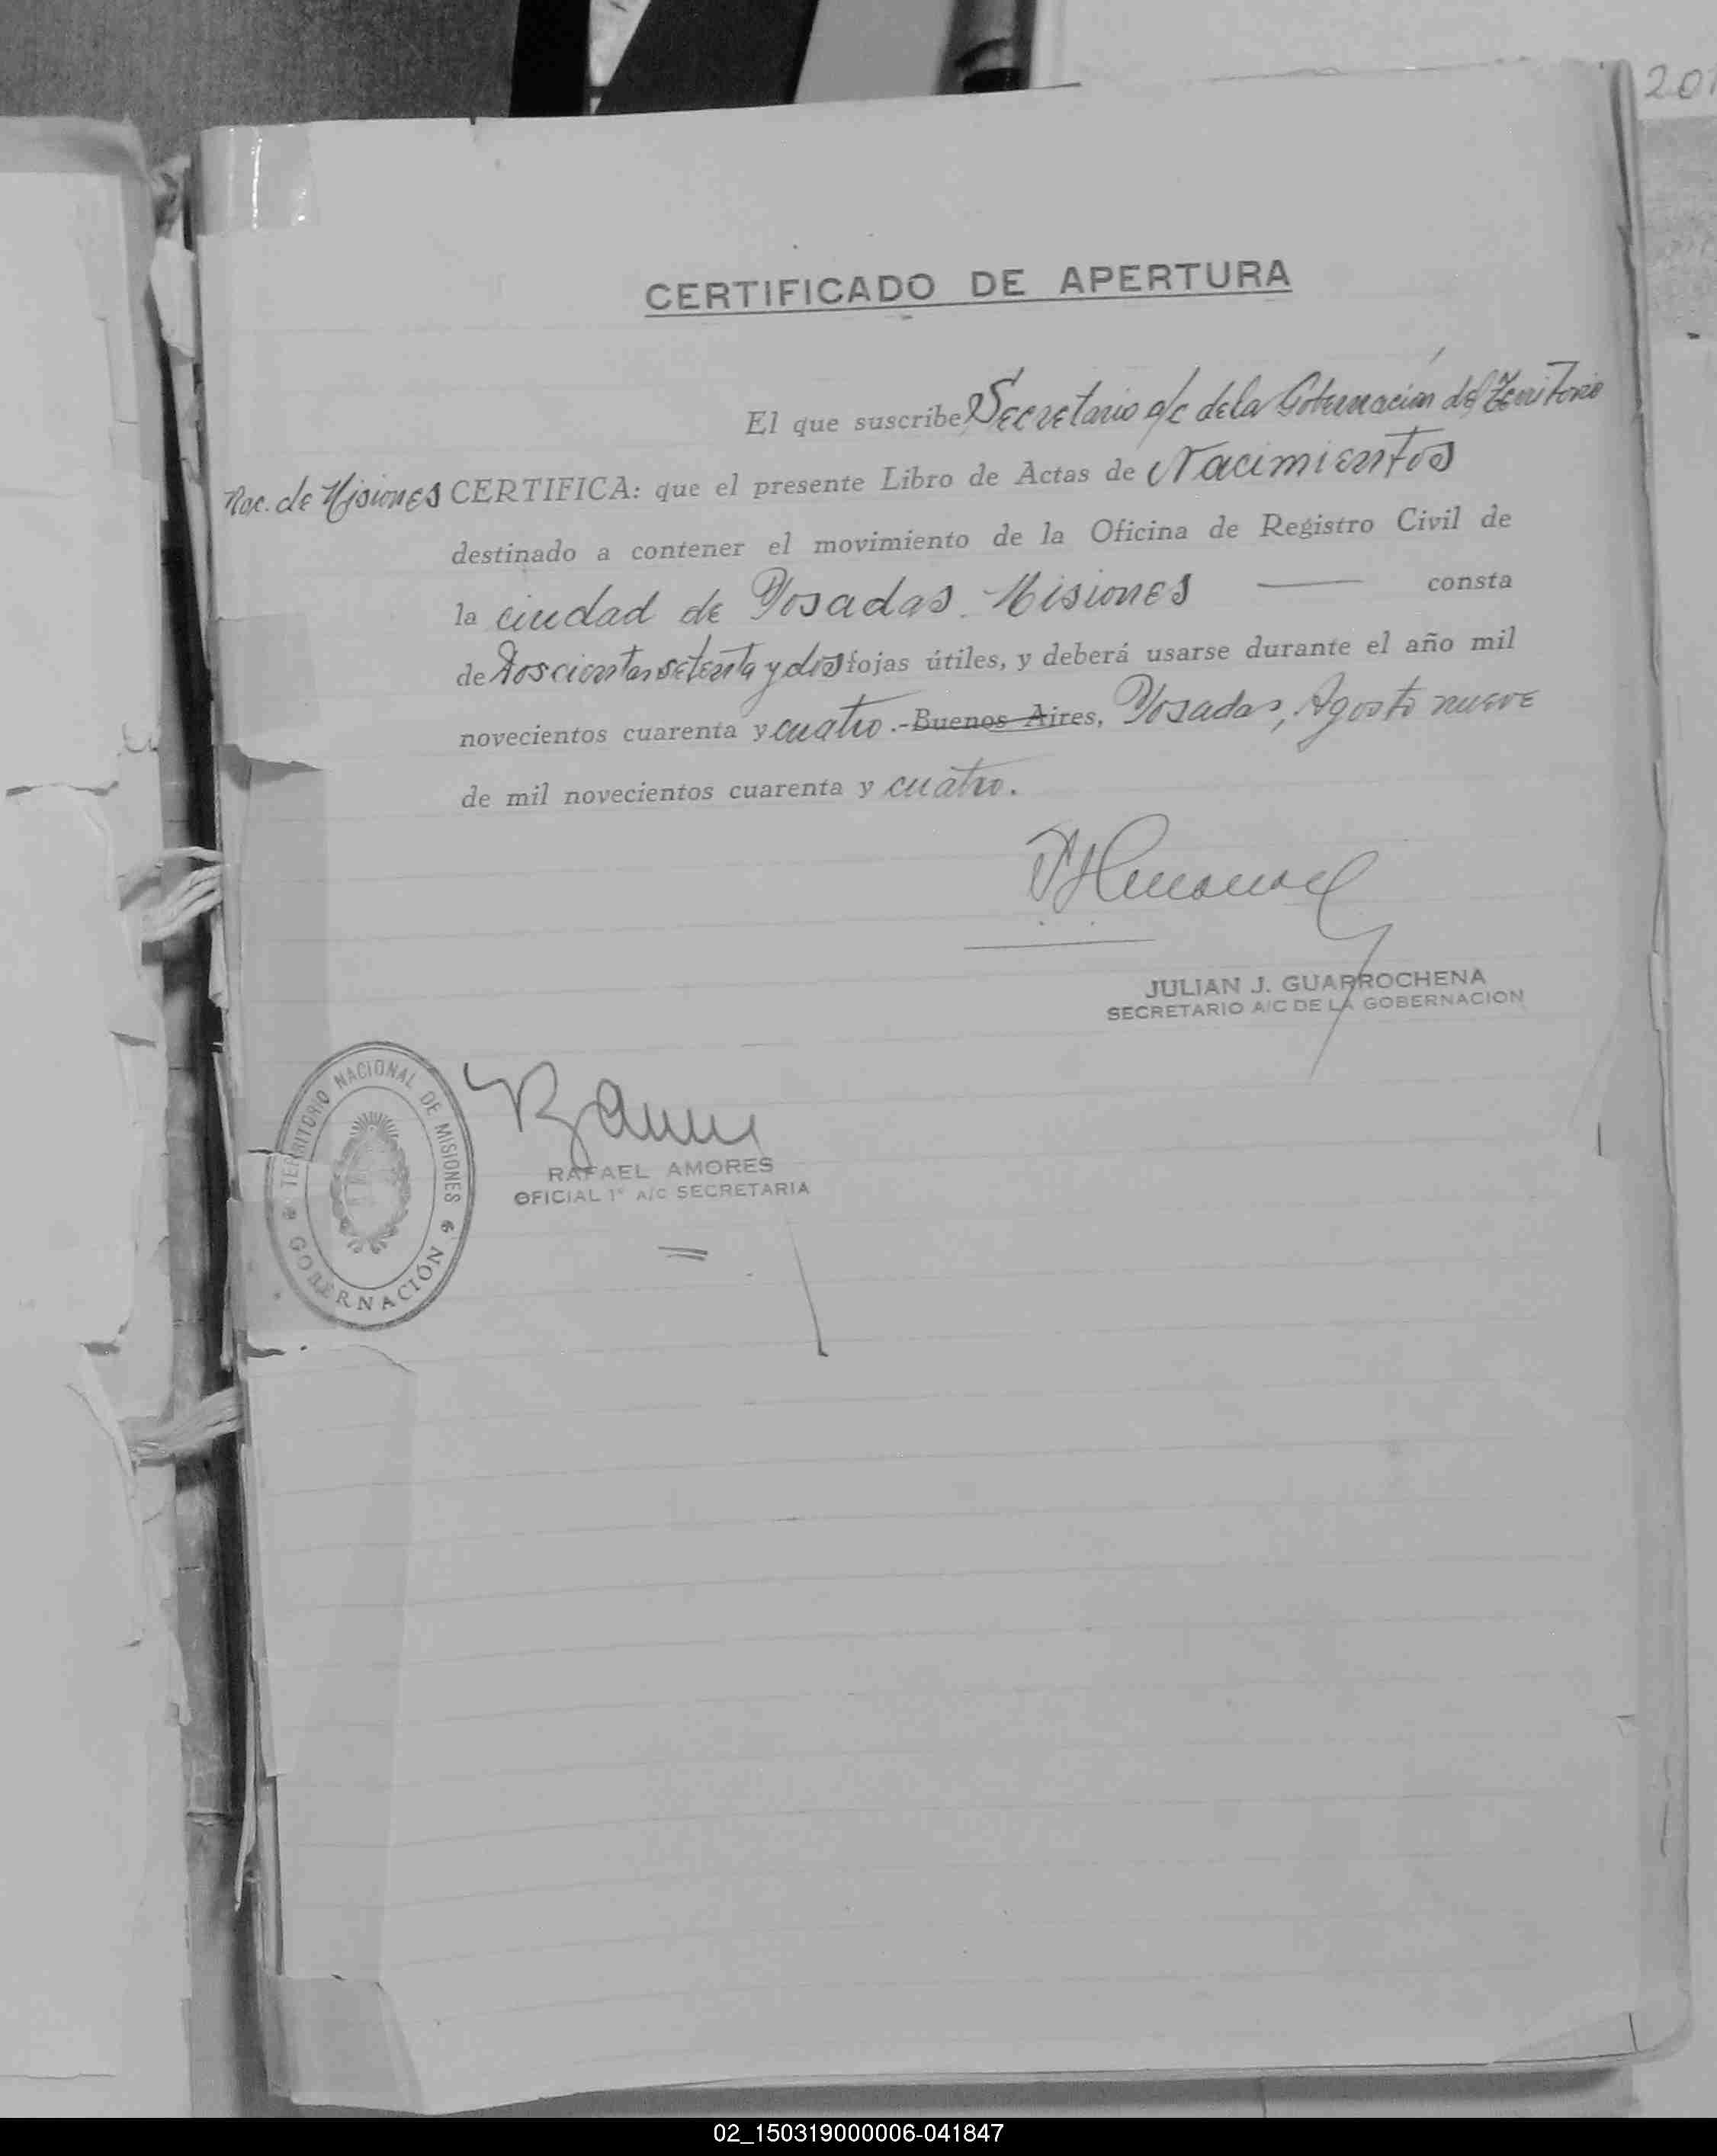 201
CERTIFICADO DE APERTURA
El que suscribe, Secretario a/c de la Gobernación del Territorio
Nac. de Misiones CERTIFICA: que el presente Libro de Actas de Nacimientos
destinado a contener el movimiento de la Oficina de Registro Civil de
la ciudad de Posadas. Misiones —— consta
de Doscientas setenta y dos fojas útiles, y deberá usarse durante el año mil
novecientos cuarenta y cuatro .- Buenos Aires, Posadas, Agosto nueve
de mil novecientos cuarenta y cuatro.
JULIAN J. GUARROCHENA
SECRETARIO A/C DE LA GOBERNACION
TERRITORIO NACIONAL DE MISIONES
GOBERNACIÓN
RAFAEL AMORES
OFICIAL 1º A/C SECRETARIA
02_150319000006-041847